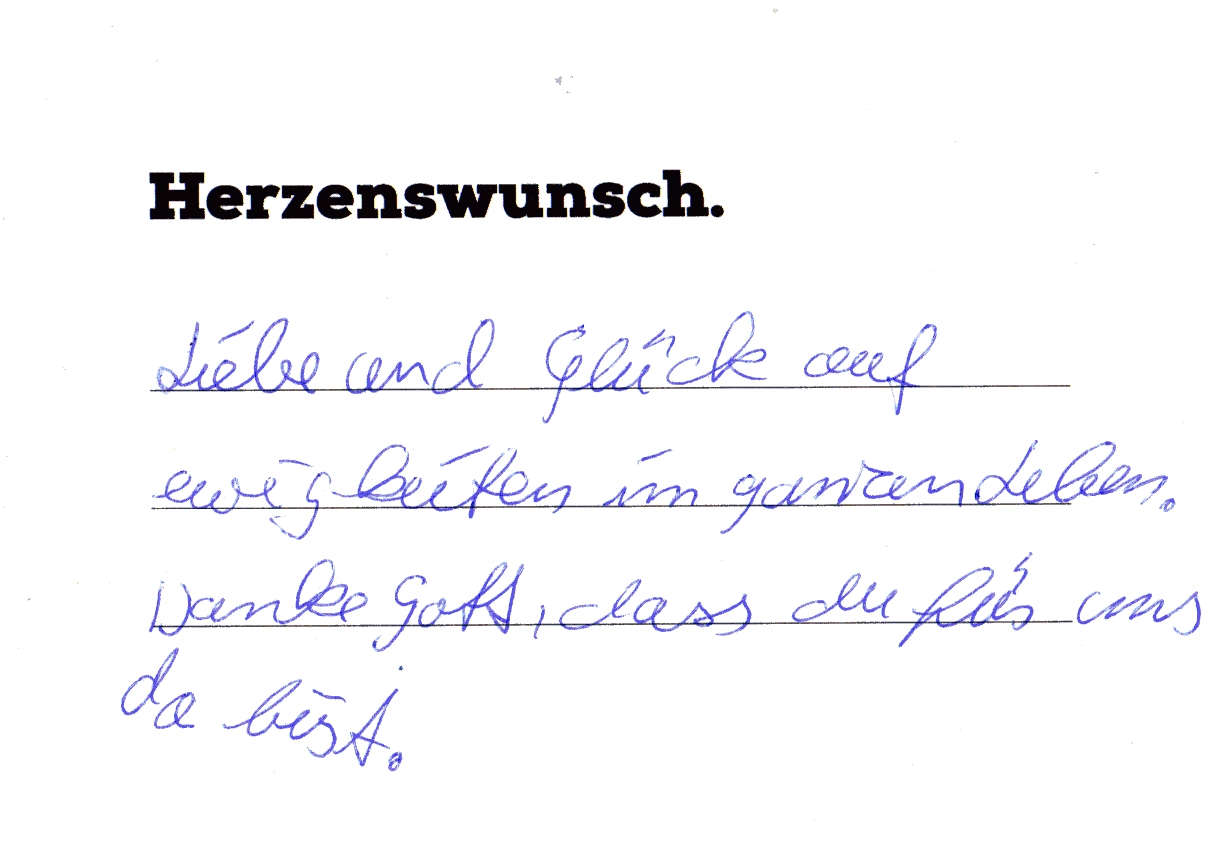 Herzenswunsch.
Liebe und Glück auf
ewigkeiten im ganzen Leben.
Danke Gott, dass du für uns
da bist.